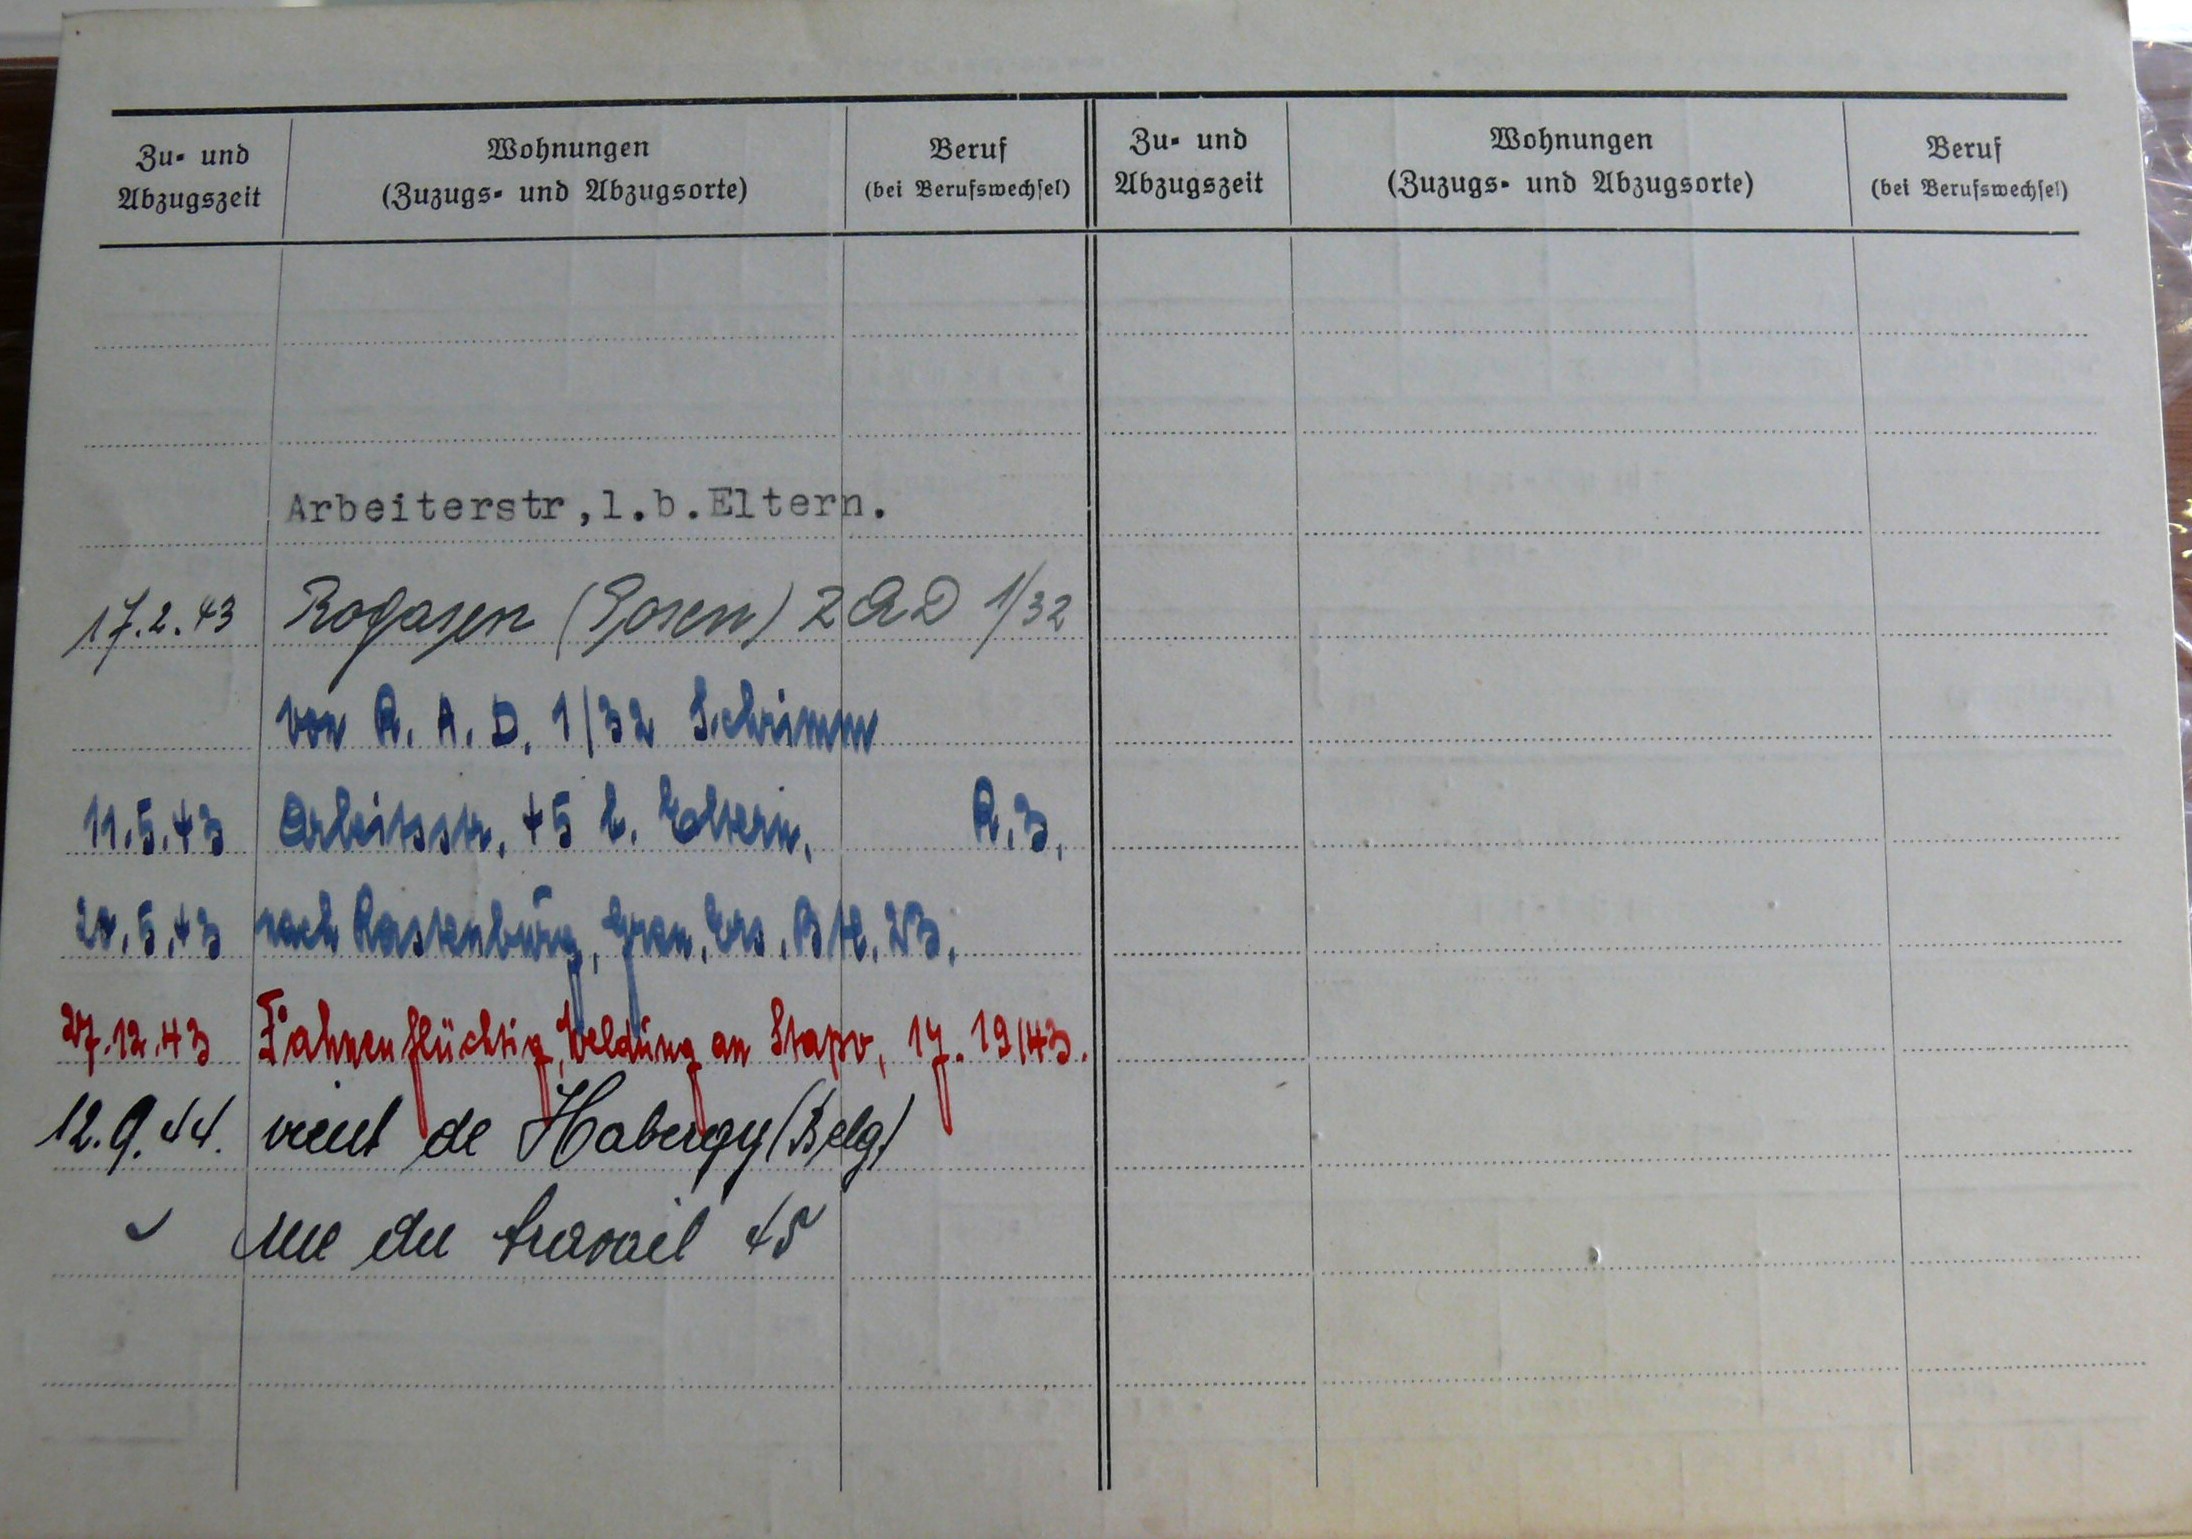 Zu- und Abzugszeit
Wohnungen
(Zuzugs- und Abzugsorte)
Beruf
(bei Berufswechsel)
Zu- und Abzugszeit
Wohnungen
(Zuzugs- und Abzugsorte)
Beruf
(bei Berufswechsel)
Arbeiterstr,l.b.Eltern.
17.2.43 Rogasen (Posen) RAD 1/32
von R. A. D. 1/32 Schrimm
11.5.43 Arbeitsstr. 45 b. Eltern. R.3.
20.5.43 nach Rastenburg, Gren. Ers. Btl. 23.
27.12.43 Fahnenflüchtig, Meldung an Stapo, 17.19/43.
12.9.44. vient de Habergy (Belg)
rue du travail 45